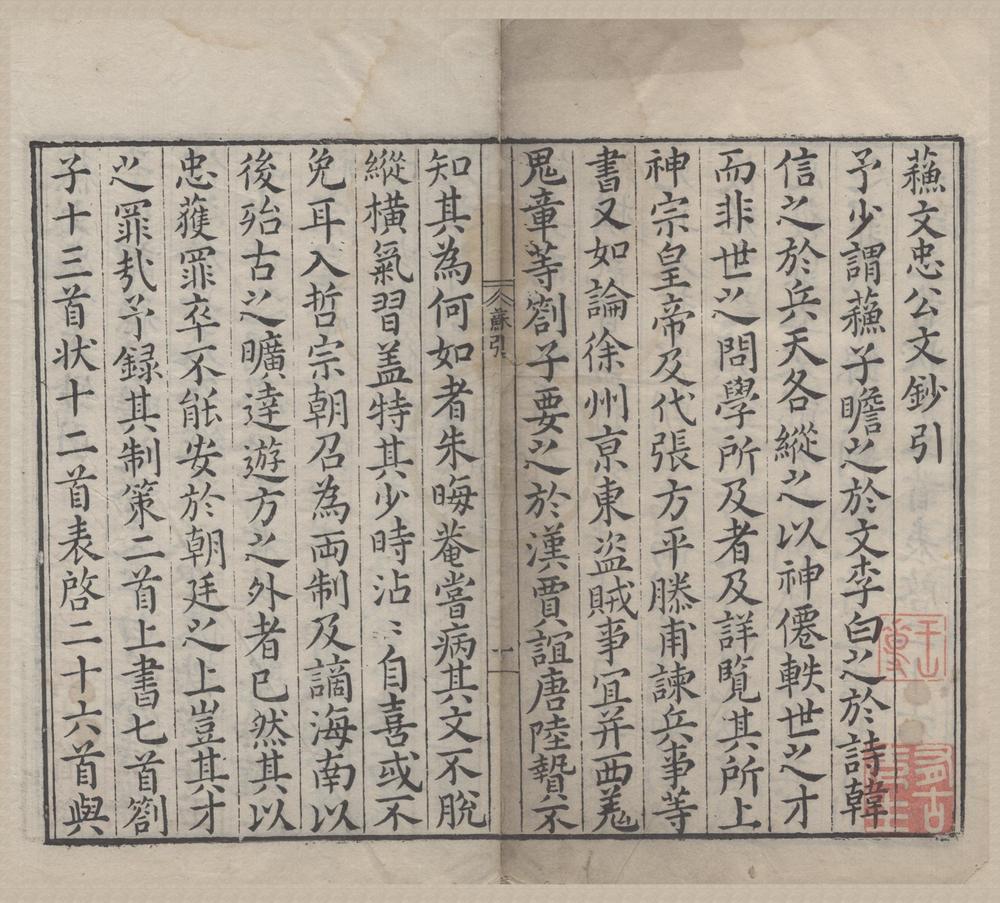 蘓文忠公文鈔引
予少謂蘓子瞻之於文李白之於詩韓
信之於兵天各縱之以神僊軼世之才
而非世之問學所及者及詳覽其所上
神宗皇帝及代張方平滕甫諫兵事等
書又如論徐州京東盜賊事宜并西羗
鬼章等劄子要之於漢賈誼唐陸贄不
蘇引
一
知其為何如者朱晦菴嘗病其文不脫
縱橫氣習盖特其少時沾〻自喜或不
免耳入哲宗朝召為兩制及謫海南以
後殆古之曠逹遊方之外者已然其以
忠獲罪卒不能安於朝廷之上豈其才
之罪㢤予録其制策二首上書七首劄
子十三首状十二首表啓二十六首與